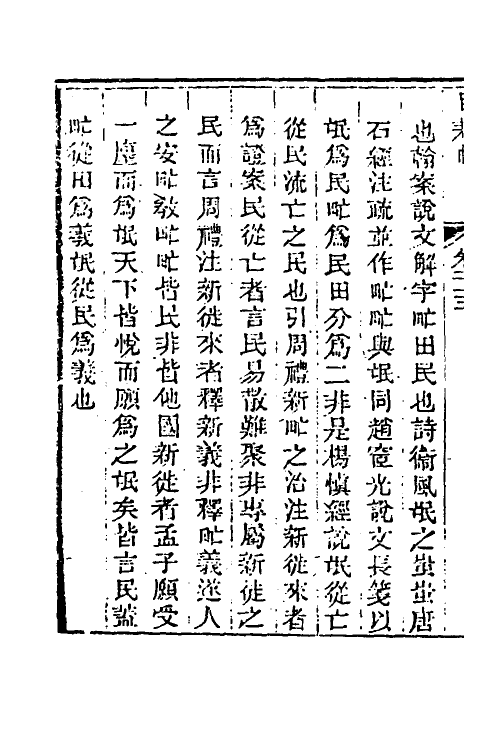 也翰案說文解字甿田民也詩衞風氓之蚩蚩唐
石經注疏並作甿甿與氓同趙宧光說文長箋以
氓爲民甿爲民田分爲二非是楊慎經說氓從亡
從民流亡之民也引周禮新甿之治注新徙來者
爲證案民從亡者言民易散難聚非專屬新徙之
民而言周禮注新徙來者釋新義非釋甿義遂人
之安甿敎甿甿皆民非皆他國新徙者孟子願受
一廛而爲氓天下皆悅而願爲之氓矣皆言民蓋
甿從田爲義氓從民爲義也